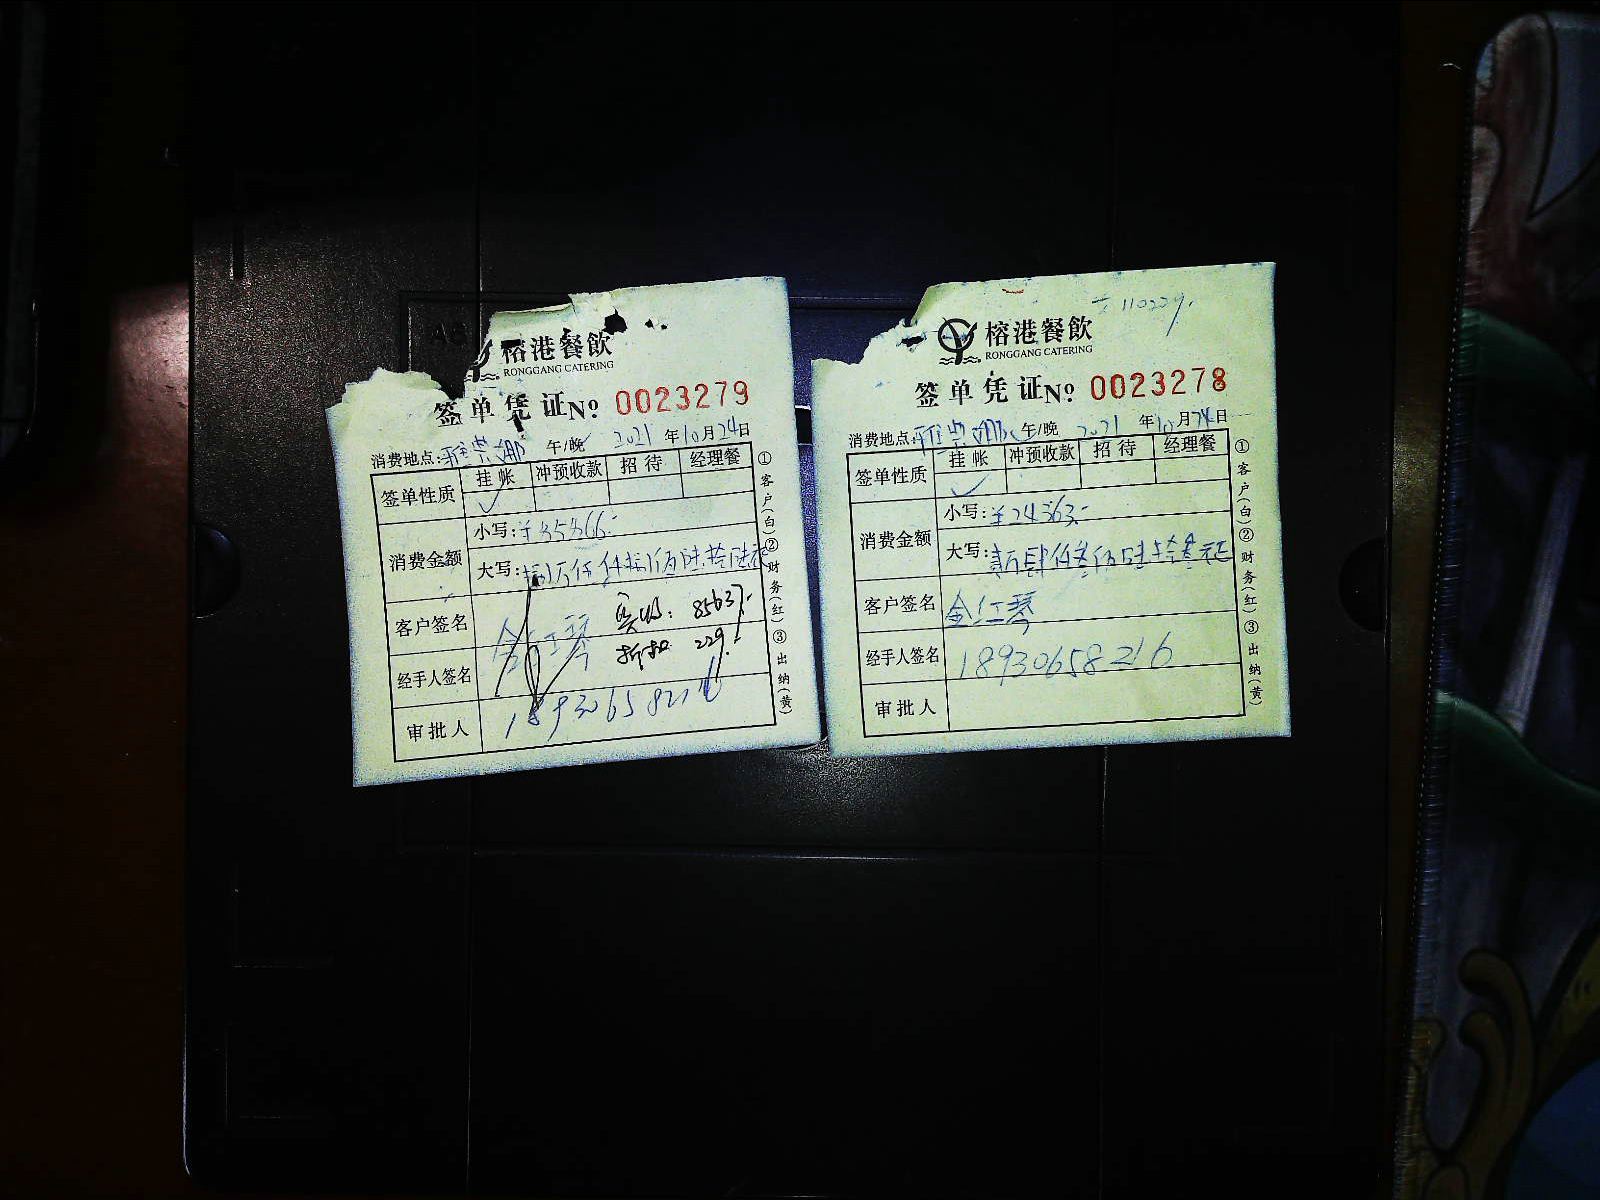 榕港餐飲
RONGGANG CATERING
签单凭证 No 0023279
消费地点: 雅崇娜 午/晚 2021 年 10 月 24 日
签单性质 挂帐 冲预收款 招待 经理餐
✓
消费金额 小写: ¥
大写:
客户签名 金红琴 实收: 85637.-
经手人签名 折扣 229.
审批人 18930658216
①客户(白)②财务(红)③出纳(黄)
榕港餐飲
RONGGANG CATERING
签单凭证 No 0023278
消费地点: 雅崇娜 午/晚 2021 年 10 月 24 日
签单性质 挂帐 冲预收款 招待 经理餐
✓
消费金额 小写: ¥24363.-
大写: 贰万肆仟叁佰陆拾叁元
客户签名 金红琴
经手人签名 18930658216
审批人
①客户(白)②财务(红)③出纳(黄)